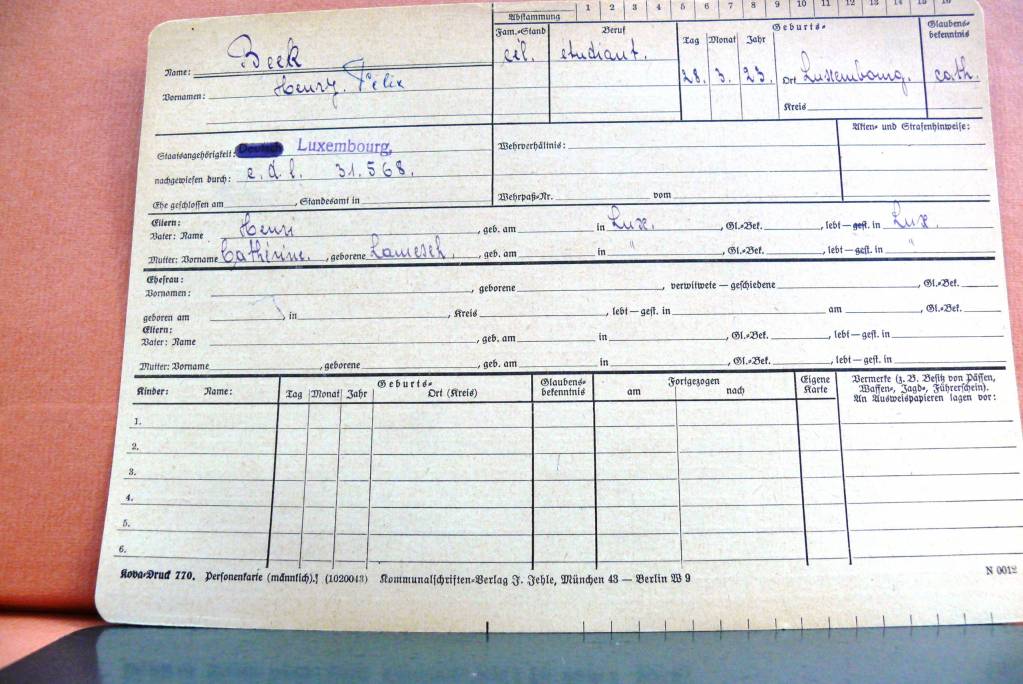 Abstammung 1 2 3 4 5 6 7 8 9 10 11 12 13 14 15 16
Name: Beck
Vornamen: Henry. Félix
Fam.=Stand cél.
Beruf étudiant.
Geburts=
Tag Monat Jahr
28. 3. 23. Ort Luxembourg.
Kreis
Glaubens=
bekenntnis
cath.
Staatsangehörigkeit: Luxembourg,
nachgewiesen durch: e.d.l. 31.568.
Ehe geschlossen am , Standesamt in
Wehrverhältnis:
Wehrpaß=Nr. vom
Akten= und Strafenhinweise:
Eltern:
Vater: Name Henri , geb. am in Lux. , Gl.=Bek. , lebt — gest. in Lux.
Mutter: Vorname Cathérine. , geborene Lamesch. , geb. am in " , Gl.=Bek. , lebt — gest. in "
Ehefrau:
Vornamen: , geborene verwitwete — geschiedene , Gl.=Bek.
geboren am , in , Kreis , lebt — gest. in am , Gl.=Bek.
Eltern:
Vater: Name , geb. am in , Gl.=Bek. , lebt — gest. in
Mutter: Vorname , geborene , geb. am in , Gl.=Bek. , lebt — gest. in
Kinder: Name:
Geburts=
Tag Monat Jahr Ort (Kreis)
Glaubens=
bekenntnis
Fortgezogen
am nach
Eigene
Karte
Vermerke (z. B. Besitz von Pässen,
Waffen=, Jagd=, Führerschein).
An Ausweispapieren lagen vor:
1.
2.
3.
4.
5.
6.
Kova=Druck 770. Personenkarte (männlich).! (1020043) Kommunalschriften=Verlag J. Jehle, München 43 — Berlin W 9
N 0012